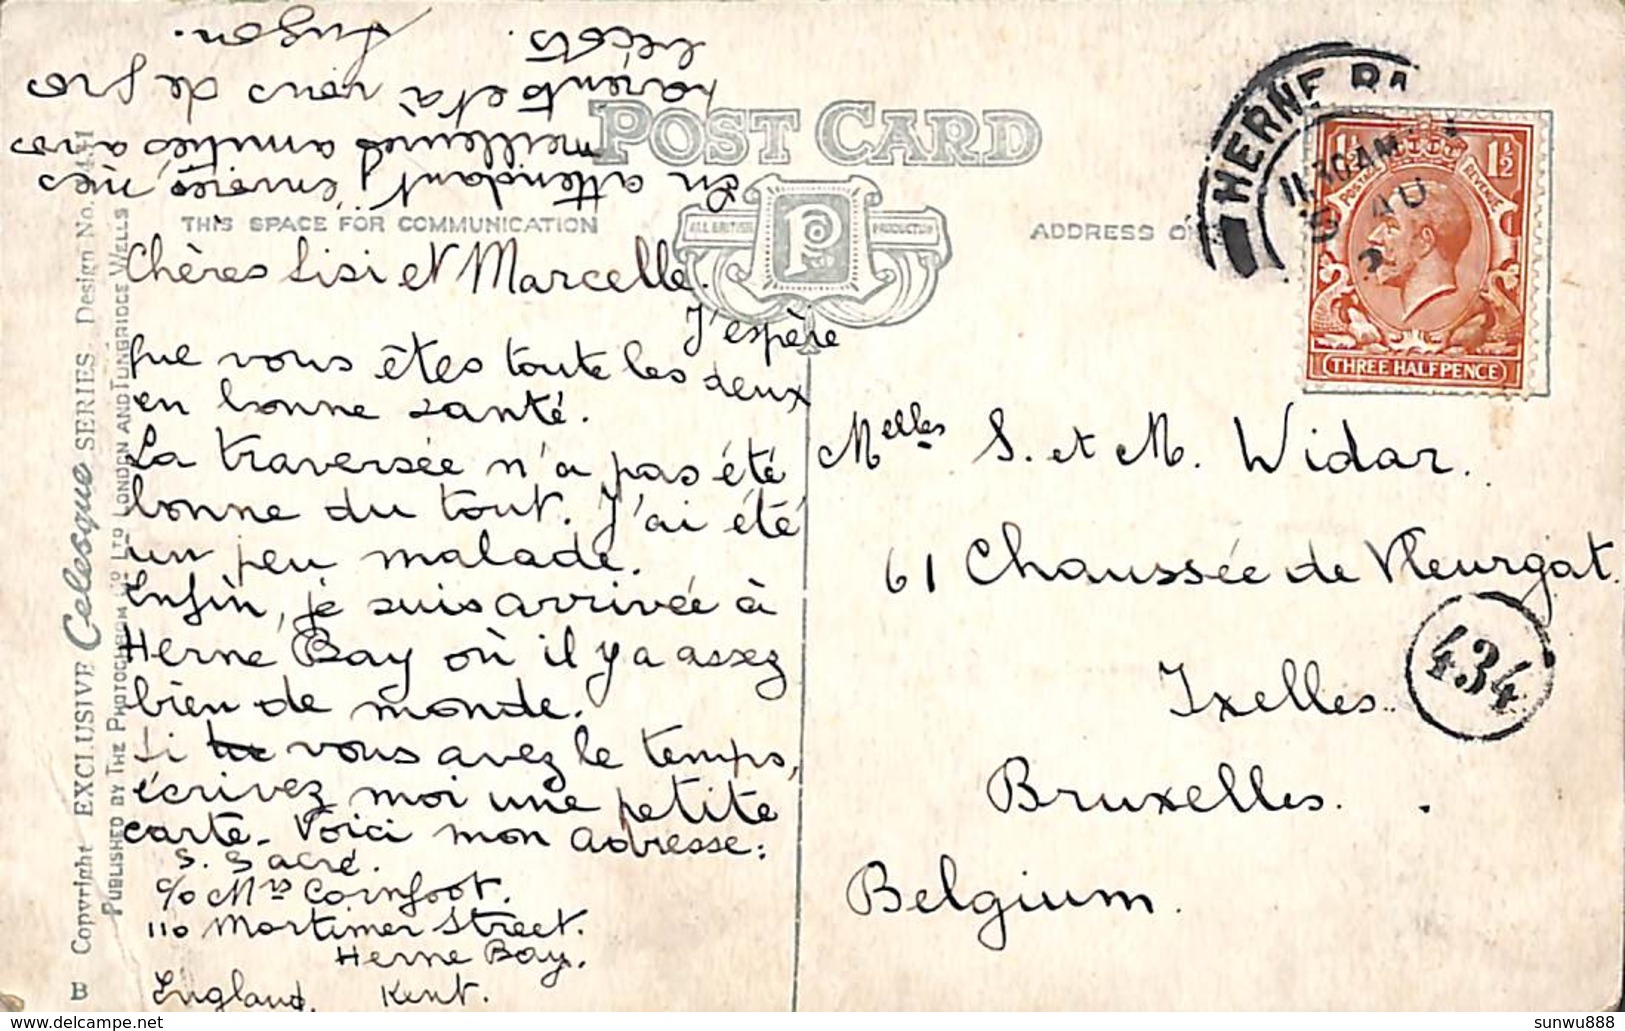 POST CARD
THIS SPACE FOR COMMUNICATION
ALL BRITISH PRODUCTION
P
ADDRESS O
Chères Sisi et Marcelle.
J'espère
que vous êtes toute les deux
en bonne santé.
La traversée n'a pas été
bonne du tout. J'ai été
un peu malade.
Enfin, je suis arrivée à
Herne Bay où il y a assez
bien de monde.
Si vous avez le temps,
écrivez moi une petite
carte. Voici mon adresse:
S. Sacré.
c/o Mrs Cornfoot.
110 Mortimer Street.
Herne Bay.
England. Kent.
En attendant j'envoie, mes
meilleures amitiés à vos
parents et à vous de gros
bécots.
Suzon.
Melles S. et M. Widar.
61 Chaussée de Vleurgat.
Ixelles.
Bruxelles.
Belgium.
HERNE BA
11.30 AM
AU
1½ 1½
POSTAGE REVENUE
THREE HALFPENCE
434
B Copyright EXCLUSIVE Celesque SERIES. Design No.
PUBLISHED BY THE PHOTOCHROM CO LTD LONDON AND TUNBRIDGE WELLS
sunwu888